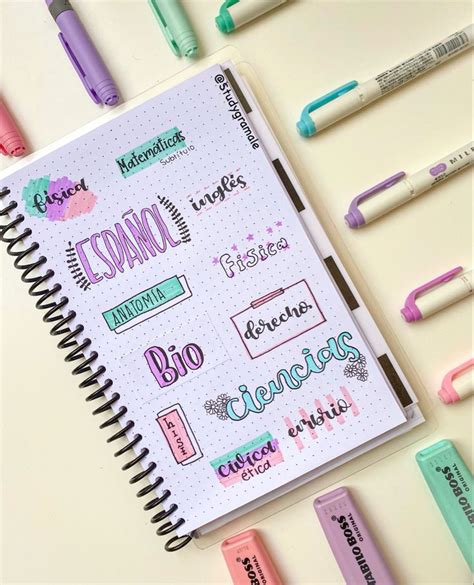 @Studygramale
física
Matemáticas
Subtítulo
ESPAÑOL
inglés
Física
ANATOMÍA
derecho
Bio
Ciencias
embrio
cívica
ética
STABILO BOSS
ORIGINAL
STABILO BOSS
ORIGINAL
STABILO BOSS
ORIGINAL
MILD